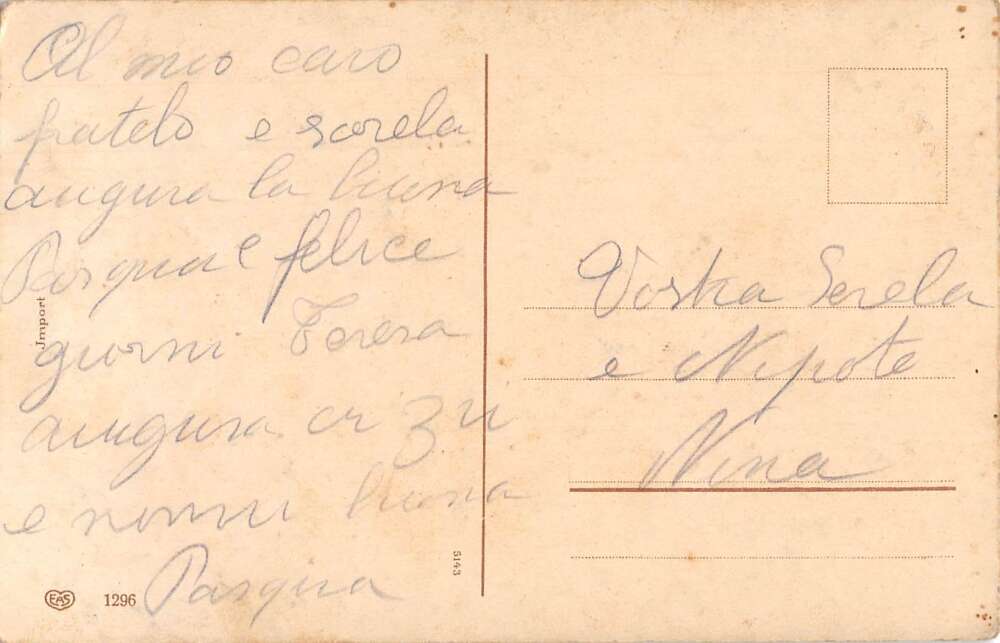 Al mio caro
fratelo e sorela
augura la buona
Pasqua e felice
giorni Teresa
augura ai zii
e nonni buona
Pasqua
Vostra Serela
e Nipote
Nina
Jmport
5143
EAS
1296